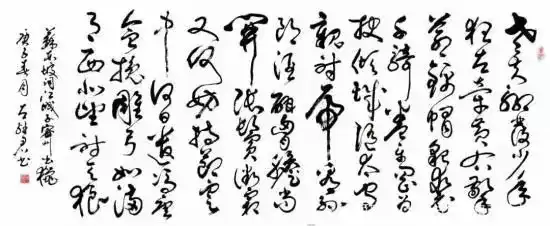 老夫聊發少年
狂左牽黃右擎
蒼錦帽貂裘
千騎卷平岡為
報傾城隨太守
親射虎看孫
郎酒酣胸膽尚
開張鬢微霜
又何妨持節雲
中何日遣馮唐
會挽雕弓如滿
月西北望射天狼
蘇東坡詞江城子密州出獵
庚子春月 書